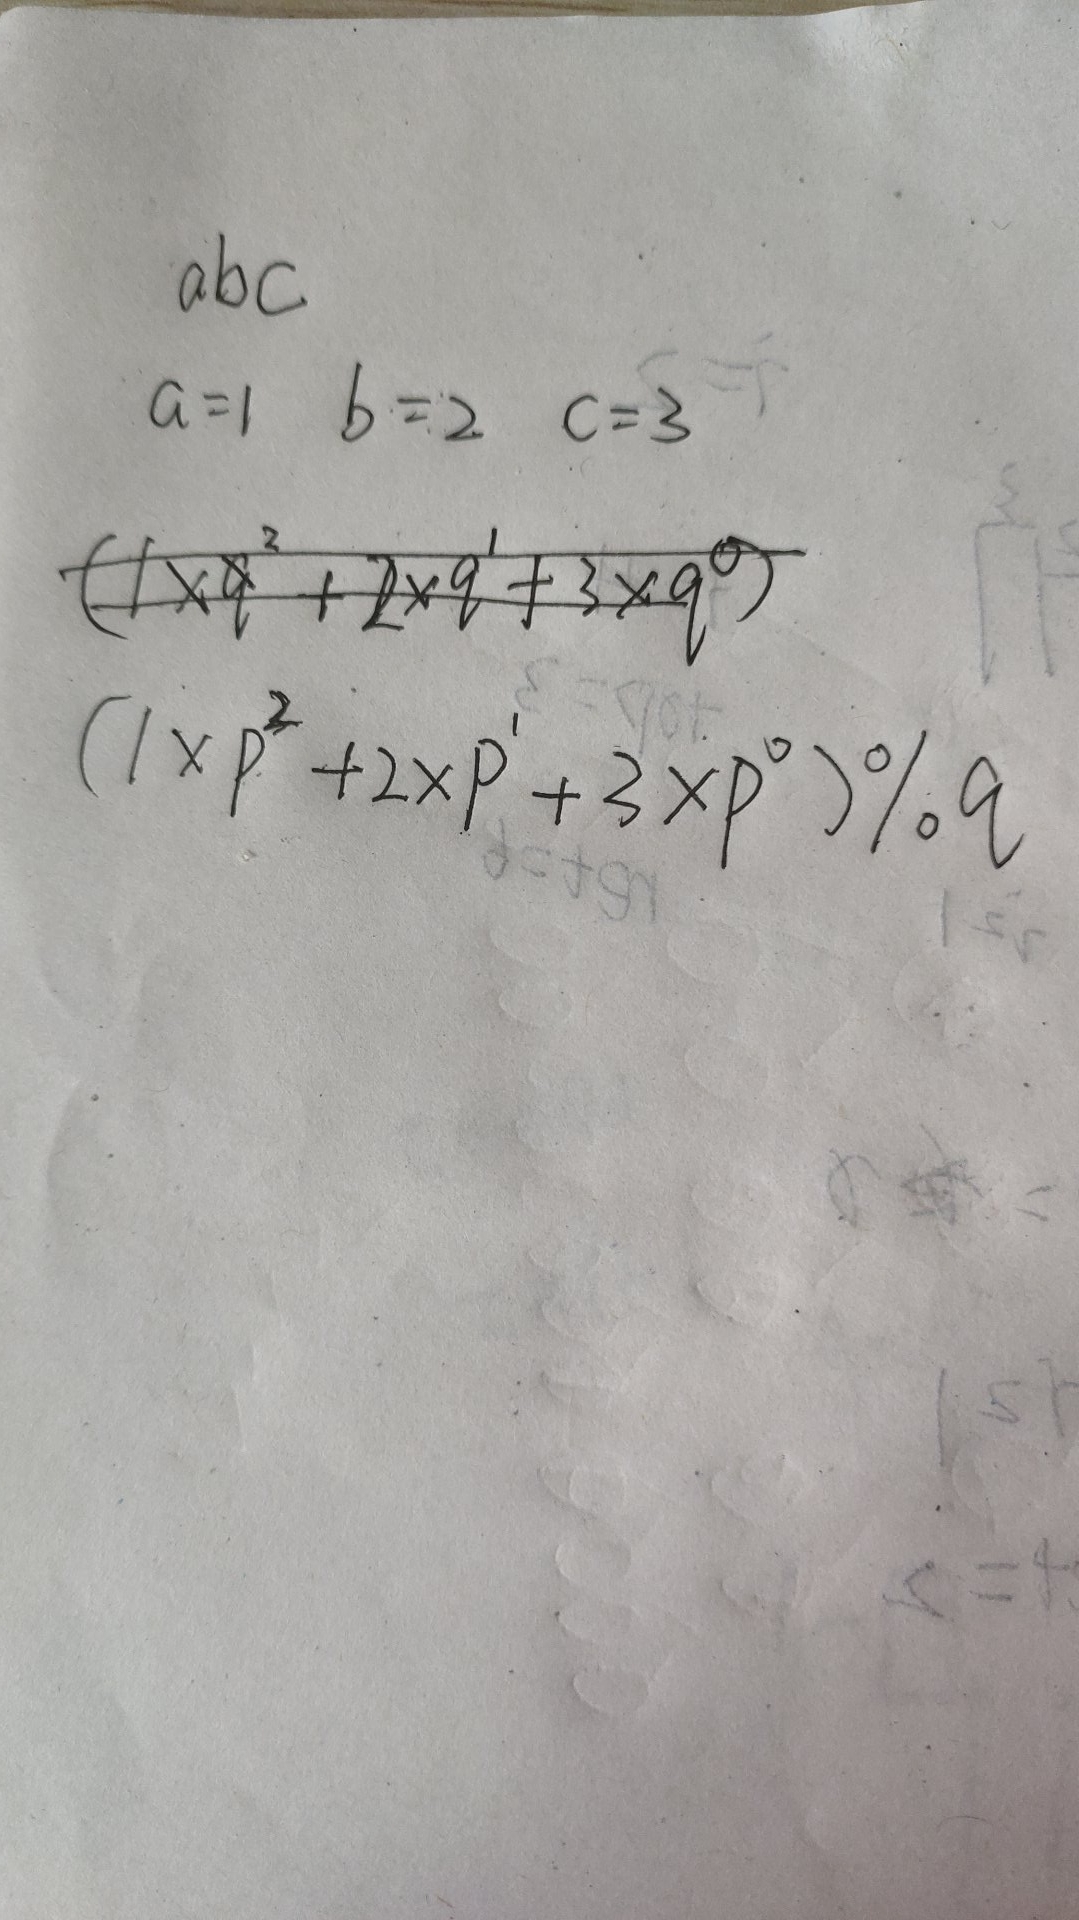 abc
a=1 b=2 c=3
(1×q²+2×q¹+3×q⁰)
(1×p²+2×p¹+3×p⁰)%q